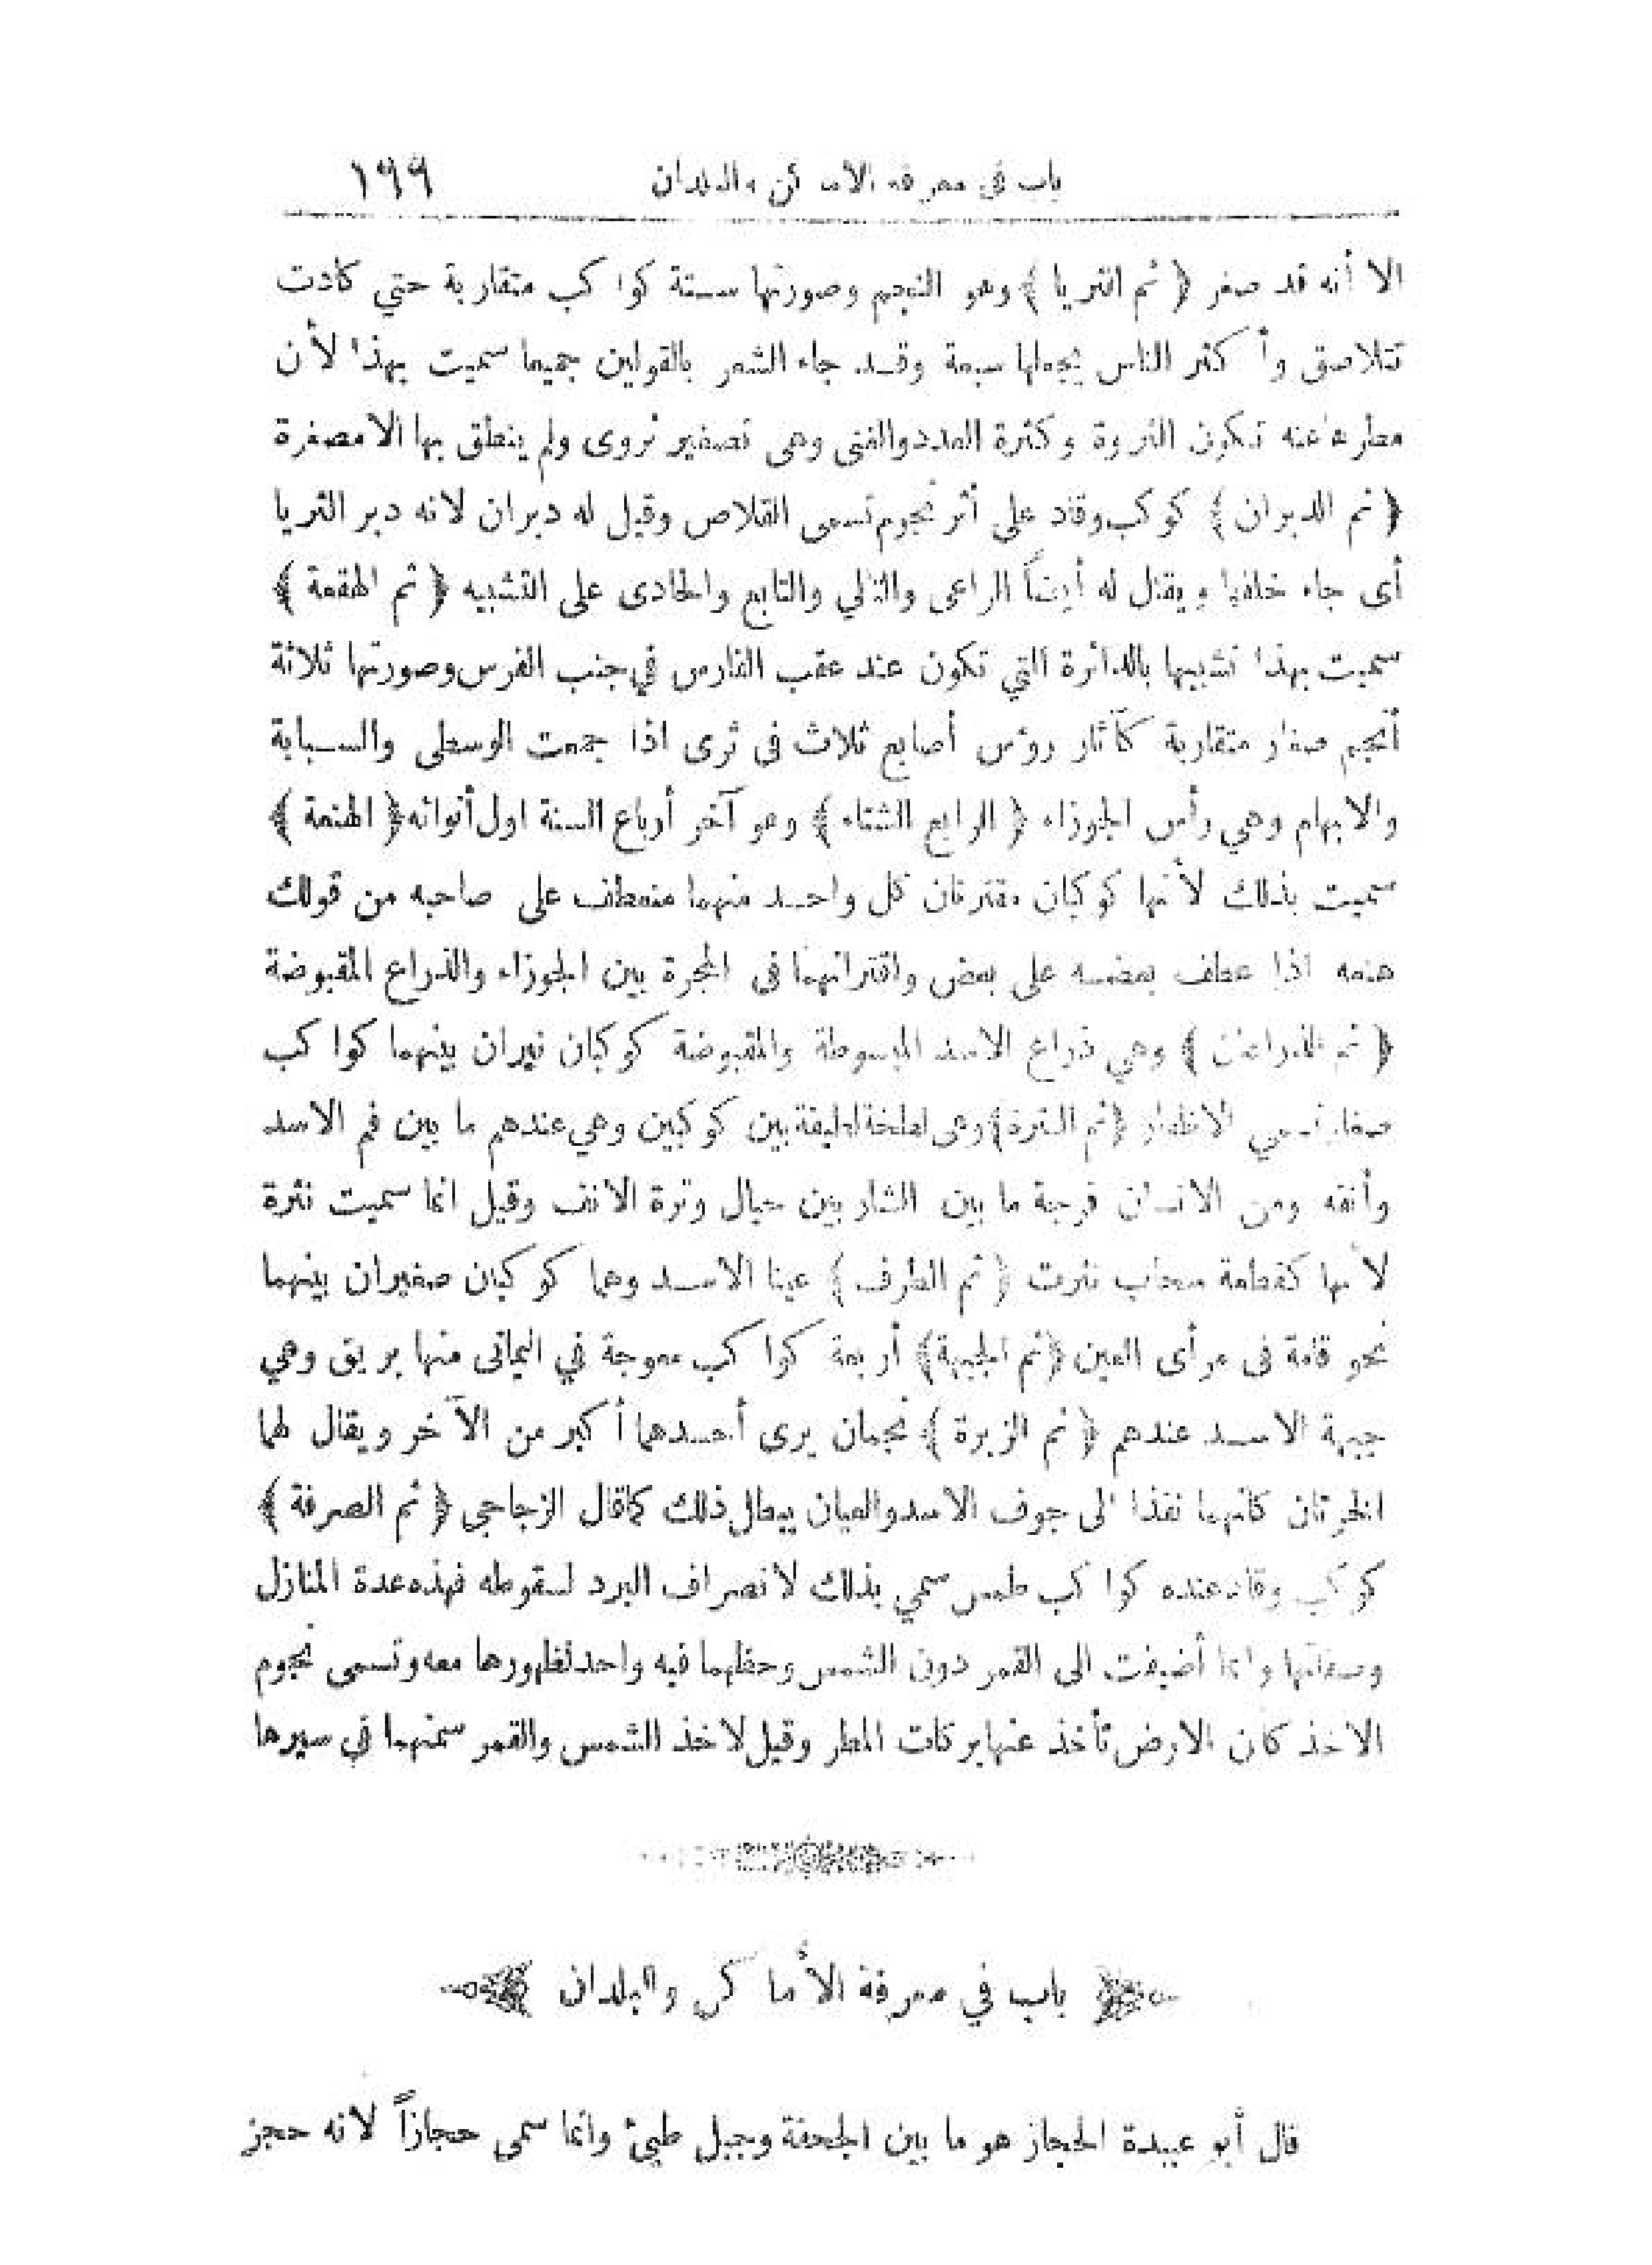 باب في معرفة الاماكن والبلدان ١٩٩
الا أنه قد صغر ﴿ ثم الثريا ﴾ وهو النجم وصورتها ستة كواكب متقاربة حتي كادت
تتلاصق وأكثر الناس يجعلها سبعة وقد جاء الشعر بالقولين جميعا سميت بهذا لأن
مطرها عنه تكون الثروة وكثرة العدد والغنى وهى تصغير ثروى ولم ينطق بها الا مصغرة
﴿ ثم الدبران ﴾ كوكب وقاد على أثر نجوم تسمى القلاص وقيل له دبران لانه دبر الثريا
أى جاء خلفها ويقال له أيضاً الراعى والتالي والتابع والحادى على التشبيه ﴿ ثم الهقعة ﴾
سميت بهذا تشبيها بالدائرة التي تكون عند عقب الفارس في جنب الفرس وصورتها ثلاثة
أنجم صغار متقاربة كآثار رؤس أصابع ثلاث فى ثرى اذا جمعت الوسطى والسبابة
والابهام وهي رأس الجوزاء ﴿ الرابع الشتاء ﴾ وهو آخر أرباع السنة اول أنوائه ﴿ الهنعة ﴾
سميت بذلك لأنها كوكبان مقترنان كل واحد منهما منعطف على صاحبه من قولك
هنعه اذا عطف بعضه على بعض واقترانهما فى المجرة بين الجوزاء والذراع المقبوضة
﴿ ثم الذراعان ﴾ وهي ذراع الاسد المبسوطة والمقبوضة كوكبان نيران بينهما كواكب
صغار تسمي الاظفار ﴿ ثم النثرة ﴾ وهى لطخة لطيفة بين كوكبين وهي عندهم ما بين فم الاسد
وأنفه ومن الانسان فرجة ما بين الشاربين حيال وترة الانف وقيل انما سميت نثرة
لأنها كقطعة سحاب نثرت ﴿ ثم الطرف ﴾ عينا الاسد وهما كوكبان صغيران بينهما
نحو قامة فى مرأى العين ﴿ ثم الجبهة ﴾ أربعة كواكب معوجة في اليمانى منها بريق وهي
جبهة الاسد عندهم ﴿ ثم الزبرة ﴾ نجمان يرى أحدهما أكبر من الآخر ويقال لهما
الخرتان كأنهما نفذا الى جوف الاسد والعيان يبطل ذلك كما قال الزجاجى ﴿ ثم الصرفة ﴾
كوكب وقاد عنده كواكب طمس سمي بذلك لانصراف البرد لسقوطه فهذه عدة المنازل
وصفاتها وانما أضيفت الى القمر دون الشمس وحظهما فيه واحد لظهورها معه وتسمى نجوم
الاخذ كأن الارض تأخذ عنها بركات المطر وقيل لاخذ الشمس والقمر سمتهما في سيرها
باب في معرفة الأماكن والبلدان
قال أبو عبيدة الحجاز هو ما بين الجحفة وجبل طيئ وانما سمى حجازاً لانه حجز